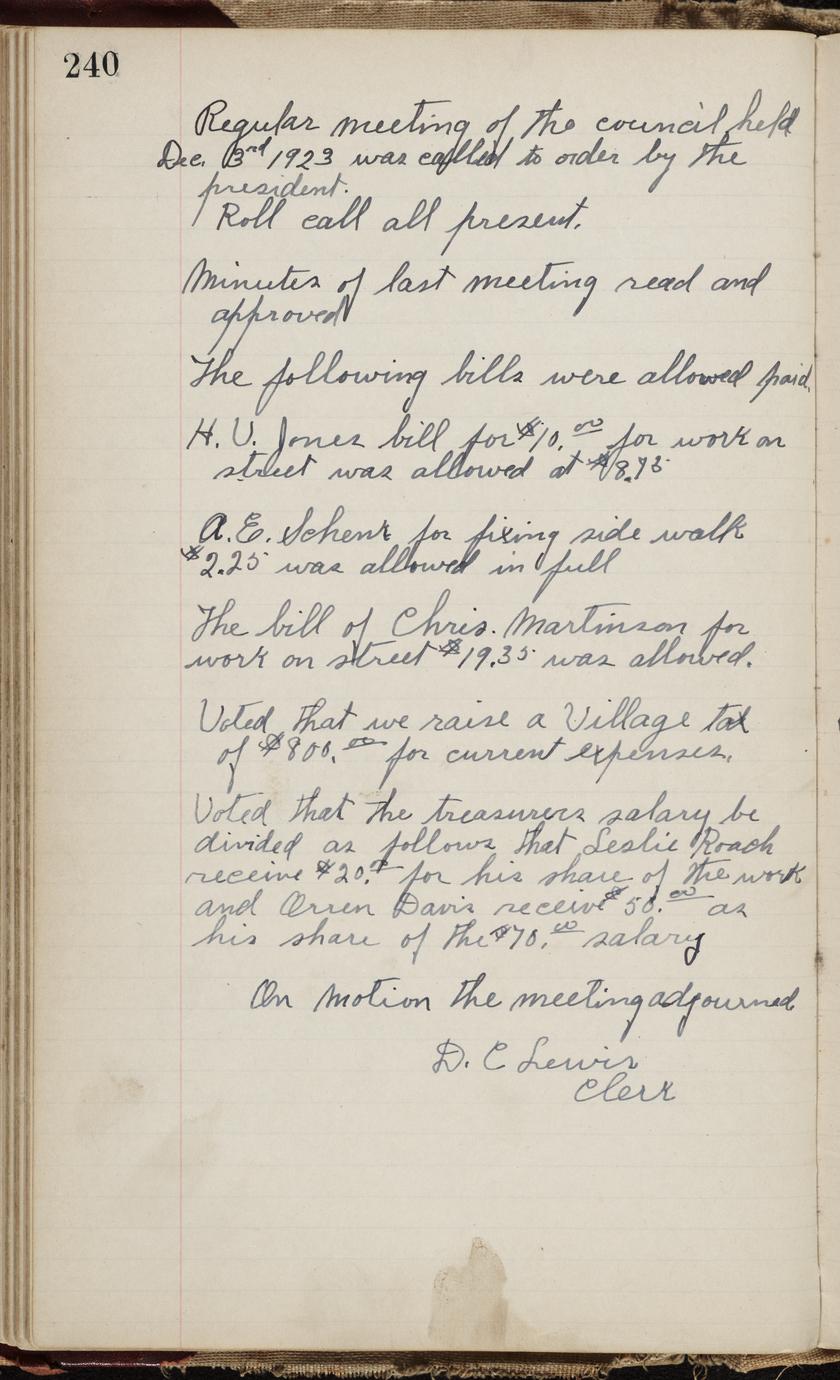 240
Regular meeting of the council held
Dec. 3rd 1923 was called to order by the
president.
Roll call all present.
Minutes of last meeting read and
approved
The following bills were allowed paid.
H. V. Jones bill for $10.00 for work on
street was allowed at $8.75
A.E. Schenk for fixing side walk
$2.25 was allowed in full
The bill of Chris. Martinson for
work on street $19.35 was allowed.
Voted that we raise a Village tax
of $800.00 for current expenses.
Voted that the treasurers salary be
divided as follows that Leslie Roach
receive $20.00 for his share of the work
and Orren Davis receive $50.00 as
his share of the $70.00 salary
On motion the meeting adjourned
D. C Lewis
Clerk